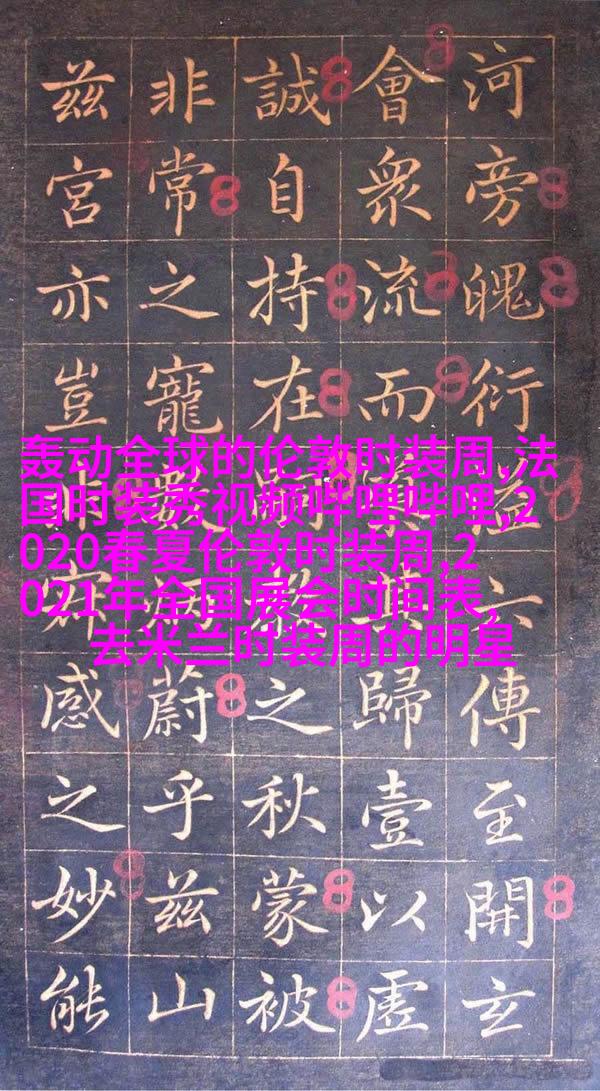 河旁魄衍溢六傳至開玄
會衆流而歸壹以虛
誠自持在之秋蒙被
非常之寵數蔚乎兹山
兹宮亦豈非感之妙能
轰动全球的伦敦时装周,法
国时装秀视频哔哩哔哩,2
020春夏伦敦时装周,2
021年全国展会时间表,
去米兰时装周的明星